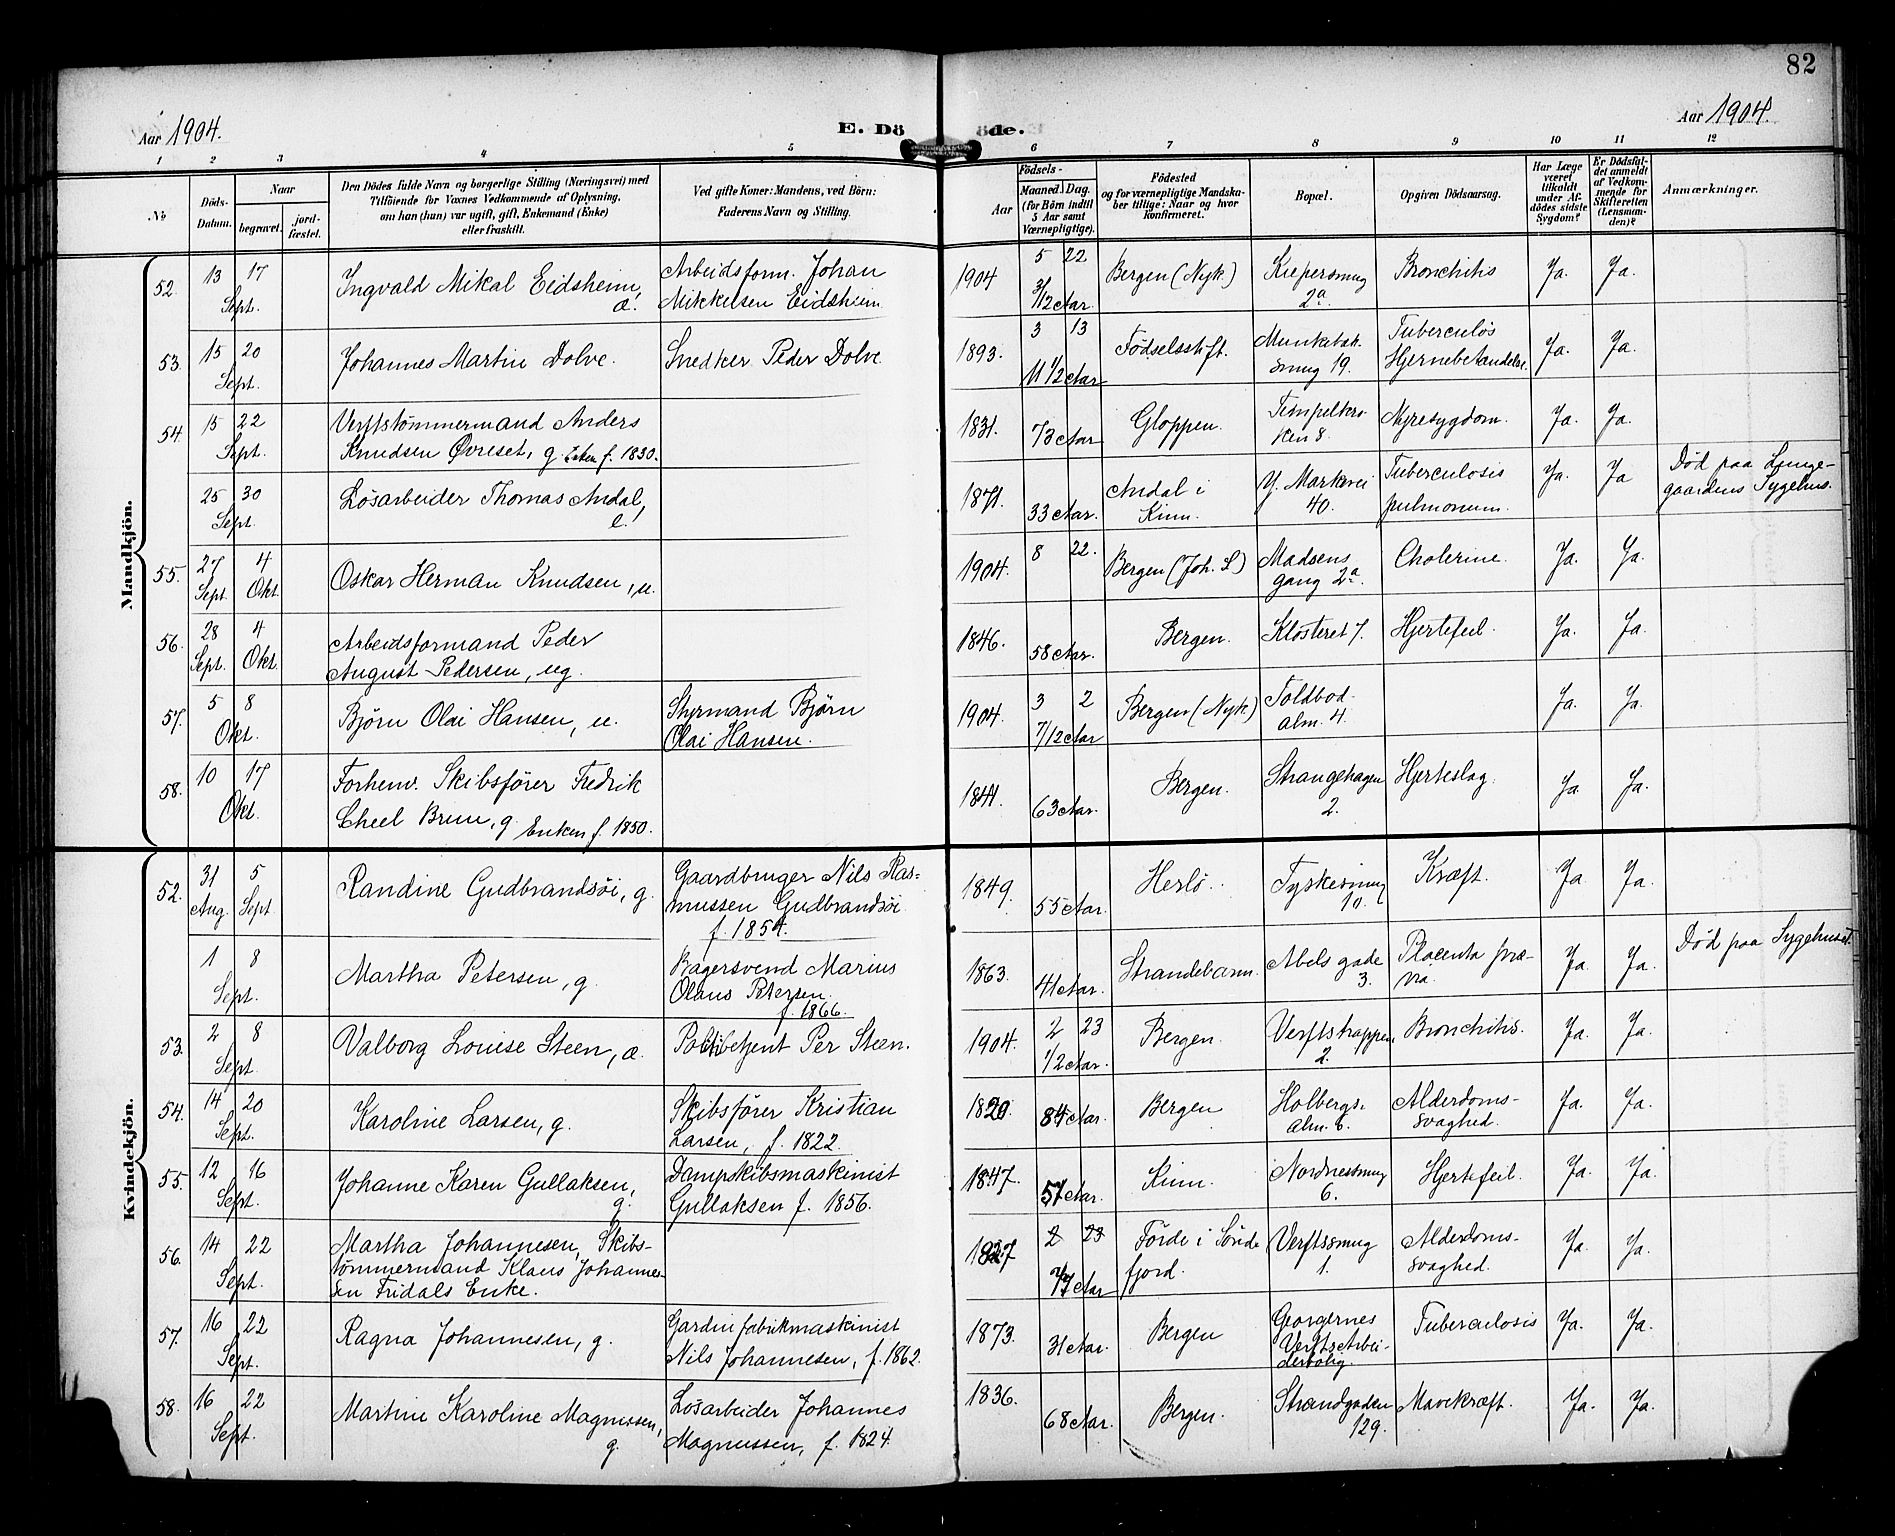 82
Aar 1904.
E. Döde.
Aar 1904.
1 2 3 4 5 6 7 8 9 10 11 12
No
Döds-Datum.
Naar
begravet.
jord-fæstet.
Den Dödes fulde Navn og borgerlige Stilling (Næringsvei) med
Tilföiende for Voxnes Vedkommende af Oplysning,
om han (hun) var ugift, gift, Enkemand (Enke)
eller fraskilt.
Ved gifte Koner: Mandens, ved Börn:
Faderens Navn og Stilling.
Födsels-
Aar
Maaned. Dag.
(for Börn indtil
5 Aar samt
Værnepligtige).
Födested
og for værnepligtige Mandska-
ber tillige: Naar og hvor
konfirmeret.
Bopæl.
Opgiven Dödsaarsag.
Har Læge
været
tilkaldt
under Af-
dödes sidste
Sygdom?
Er Dödsfal-
det anmeldt
af Vedkom-
mende for
Skifteretten
(Lensman-
den)?
Anmærkninger.
Mandkjön.
52. 13 17 Sept. Ingvald Mikal Eidsheim, Arbeidsform. Johan Mikkelsen Eidsheim 1904 5 22 3/12 Aar Bergen (Nyk) Kipersmug 2a. Bronchitis Ja. Ja.
53. 15 20 Sept. Johannes Martin Dolve. Snedker Peder Dolve 1893. 3 13 11 1/2 Aar Fødselsstift. Munkebek smug 19. Tuberculøs Hjernebetændelse. Ja. Ja.
54. 15 22 Sept. Verftstømmermand Anders Knudsen Øvreset, g. Enken f. 1830. 1831. 73 Aar Gloppen. Tempelkro ken 8. Nyresygdom. Ja. Ja.
25 30 Sept. Løsarbeider Thomas Andal, e. 1871. 33 Aar. Andal i Kinn. Y. Markevei 40. Tuberculosis pulmonum. Ja. Ja Død paa Lunge-gaardens Sygehus.
55. 27 Sept. 4 Okt. Oskar Herman Knudsen, u. 1904. 8 22. Bergen (Joh. S) Madsens gang 2a. Cholerine. Ja. Ja.
56. 28 Sept. 4 Okt. Arbeidsformand Peder August Pedersen, ug. 1846. 58 Aar. Bergen. Klosteret 7. Hjertefeil. Ja. Ja.
57. 5 8 Okt. Bjørn Olai Hansen, u. Styrmand Bjørn Olai Hansen. 1904. 3 2 7/12 Aar Bergen (Nyk) Toldbod alm. 4. Ja. Ja.
58. 10 17 Okt. Forhenv. Skibsfører Fredrik Cheel Brun, g. Enken f. 1850. 1841. 63 Aar. Bergen. Strangehagen 2. Hjerteslag. Ja Ja.
Kvindekjön.
52. 31 Aug. 5 Sept Randine Gudbrandsøi, g. Gaardbruger Nils Ras-mussen Gudbrandsøi f. 1854. 1849. 55 Aar. Herlø. Tyskesmug 10. Kræft. Ja Ja.
1 8 Sept. Martha Petersen, g. Bagersvend Marius Olaus Petersen. f. 1866. 1863. 41 Aar. Strandebarm. Abels gade 3. Placenta præ-via. Ja. Ja. Død paa Sygehuset.
53. 2 8 Sept. Valborg Louise Steen, Politibetjent Per Steen. 1904. 2 23 1/2 Aar. Bergen. Verftstrappen 2. Bronchitis. Ja. Ja.
54. 14 20 Sept. Karoline Larsen, g. Skibsfører Kristian Larsen, f. 1822. 1820. 84 Aar. Bergen Holbergs. alm. 6. Alderdoms-svaghed. Ja. Ja.
55. 12 16 Sept. Johanne Karen Gullaksen, g. Dampskibsmaskinist Gullaksen f. 1856. 1847. 57 Aar. Kinn. Nordnessmug 6. Hjertefeil. Ja. Ja.
56. 14 22 Sept. Martha Johannesen, Skibs-tømmermand Klaus Johannes-sen Fridals Enke. 1827 2 23 77 Aar Førde i Sønd fjord. Verftssmug 1. Alderdoms-svaghed. Ja. Ja.
57. 16 22 Sept. Ragna Johannesen, g. Gardinfabrikmaskinist Nils Johannesen, f. 1862. 1873. 31 Aar. Bergen Georgernes Verfts Arbei-derbolig. Tuberculosis Ja. Ja.
58. 16 22 Sept. Martine Karoline Magnussen, g. Løsarbeider Johannes Magnussen, f. 1824. 1836. 68 Aar. Bergen. Strandgaden 129. Mavekræft. Ja. Ja.